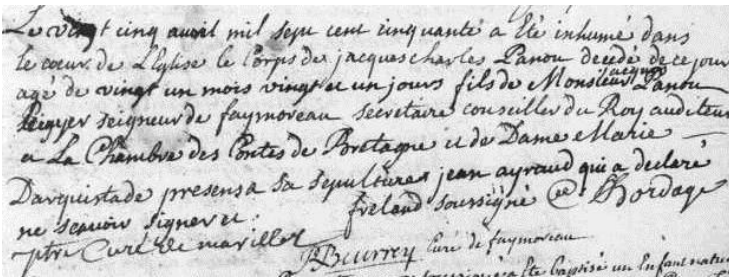 Le vingt cinq avril mil sept cent cinquante a été inhumé dans
le cœur de l'Eglise le Corps de jacques charles Panou decedé de ce jour
agé de vingt un mois vingt et un jours fils de Monsieur jacques Panou
Ecuyer seigneur de faymoreau secretaire conseiller du Roy auditeur
a La Chambre des Contes de Bretagne et de Dame Marie
Darquistade presens a sa sepulture jean ayraud qui a declaré
ne sçavoir signer et freland soussigné Bordage
ptre Curé de marillet Beurrey Curé de faymoreau
baptisé un Enfant natu